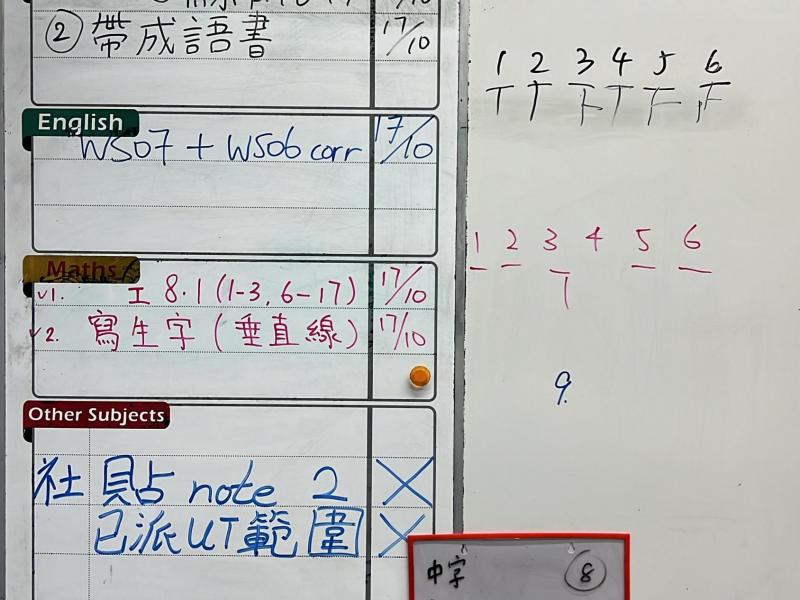 ② 帶成語書 17/10
English
WS07 + WS06 corr 17/10
Maths
✓1. 工 8.1 (1-3, 6-17) 17/10
✓2. 寫生字 (垂直線) 17/10
Other Subjects
社 貼 note 2 ✗
已派UT範圍 ✗
中字 ⑧
1 2 3 4 5 6
1 2 3 4 5 6
9.